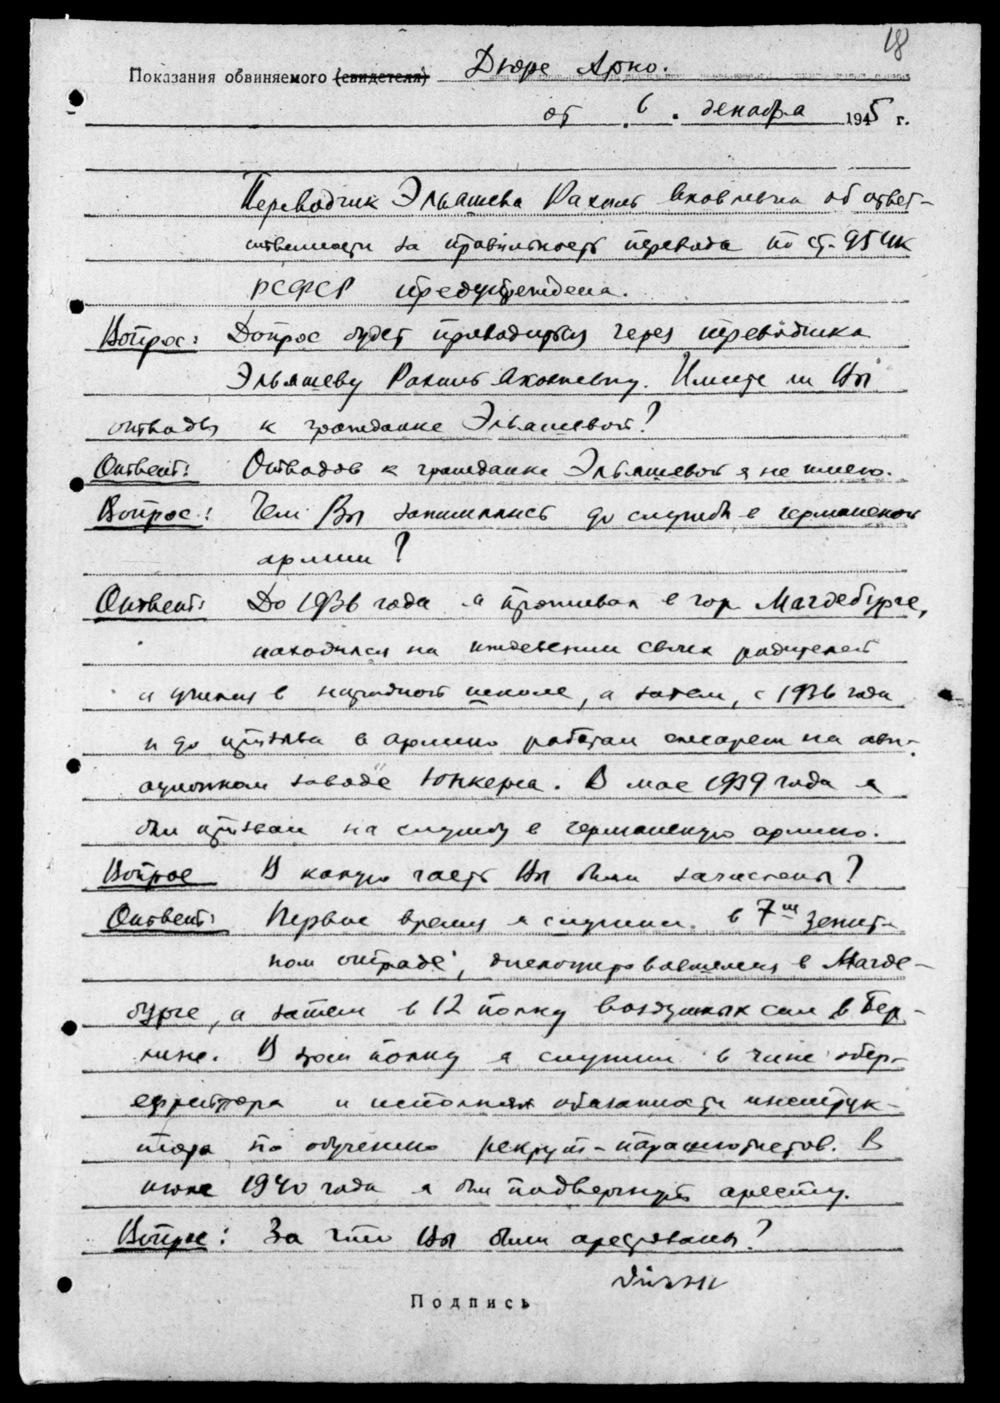 18
Показания обвиняемого (свидетеля) Дюре Арно.
от 6. декабря 1945 г.
Переводчик Эльяшева Рахиль Яковлевна об ответ-
ственности за правильность перевода по ст. 95 УК
РСФСР предупреждена.
Вопрос: Допрос будет проводиться через переводчика
Эльяшеву Рахиль Яковлевну. Имеете ли Вы
отводы к гражданке Эльяшевой?
Ответ: Отводов к гражданке Эльяшевой я не имею.
Вопрос: Чем Вы занимались до службы в германской
армии?
Ответ: До 1936 года я проживал в гор. Магдебурге,
находился на иждевении своих родителей
и учился в народной школе, а затем, с 1936 года
и до призыва в армию работал слесарем на ави-
ационном заводе Юнкерса. В мае 1939 года я
был призван на службу в германскую армию.
Вопрос В какую часть Вы были зачислены?
Ответ: Первое время я служил в 7ш зенит-
ном отряде, дислоцировавшемся в Магде-
бурге, а затем в 12 полку воздушных сил в Бер-
лине. В этом полку я служил в чине обер-
ефрейтора и исполнял обязанности инструк-
тора по обучению рекрут-парашютистов. В
1940 года я был подвергнут аресту.
Вопрос: За что Вы были арестованы?
Подпись